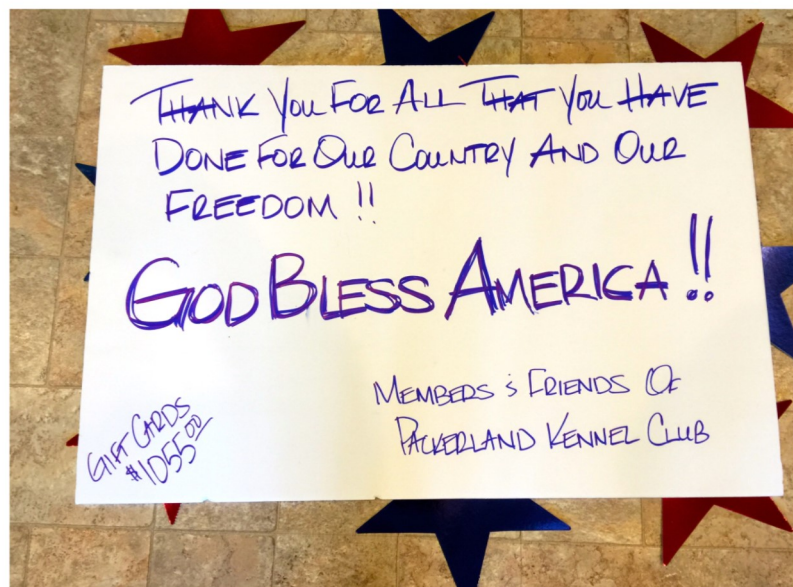 THANK YOU FOR ALL THAT YOU HAVE
DONE FOR OUR COUNTRY AND OUR
FREEDOM !!
GOD BLESS AMERICA !!
MEMBERS & FRIENDS OF
PACKERLAND KENNEL CLUB
GIFT CARDS
$1055.00